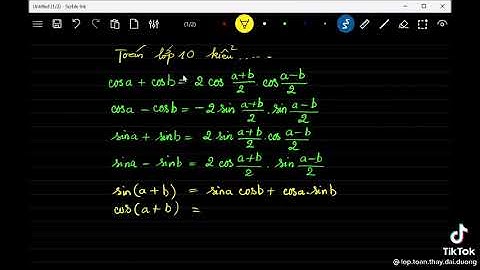 Untitled (1/2) - Scrble Ink
(1/2)
Toán lớp 10 kiểu².....
cosa + cosb = 2 cos \frac{a+b}{2} . cos \frac{a-b}{2}
cosa - cosb = -2 sin \frac{a+b}{2} . sin \frac{a-b}{2}
sina + sinb = 2 sin \frac{a+b}{2} . cos \frac{a-b}{2}
sina - sinb = 2 cos \frac{a+b}{2} . sin \frac{a-b}{2}
sin(a+b) = sina cosb + cosa.sinb
cos(a+b) =
TikTok
@lop.toan.thay.dai.duong